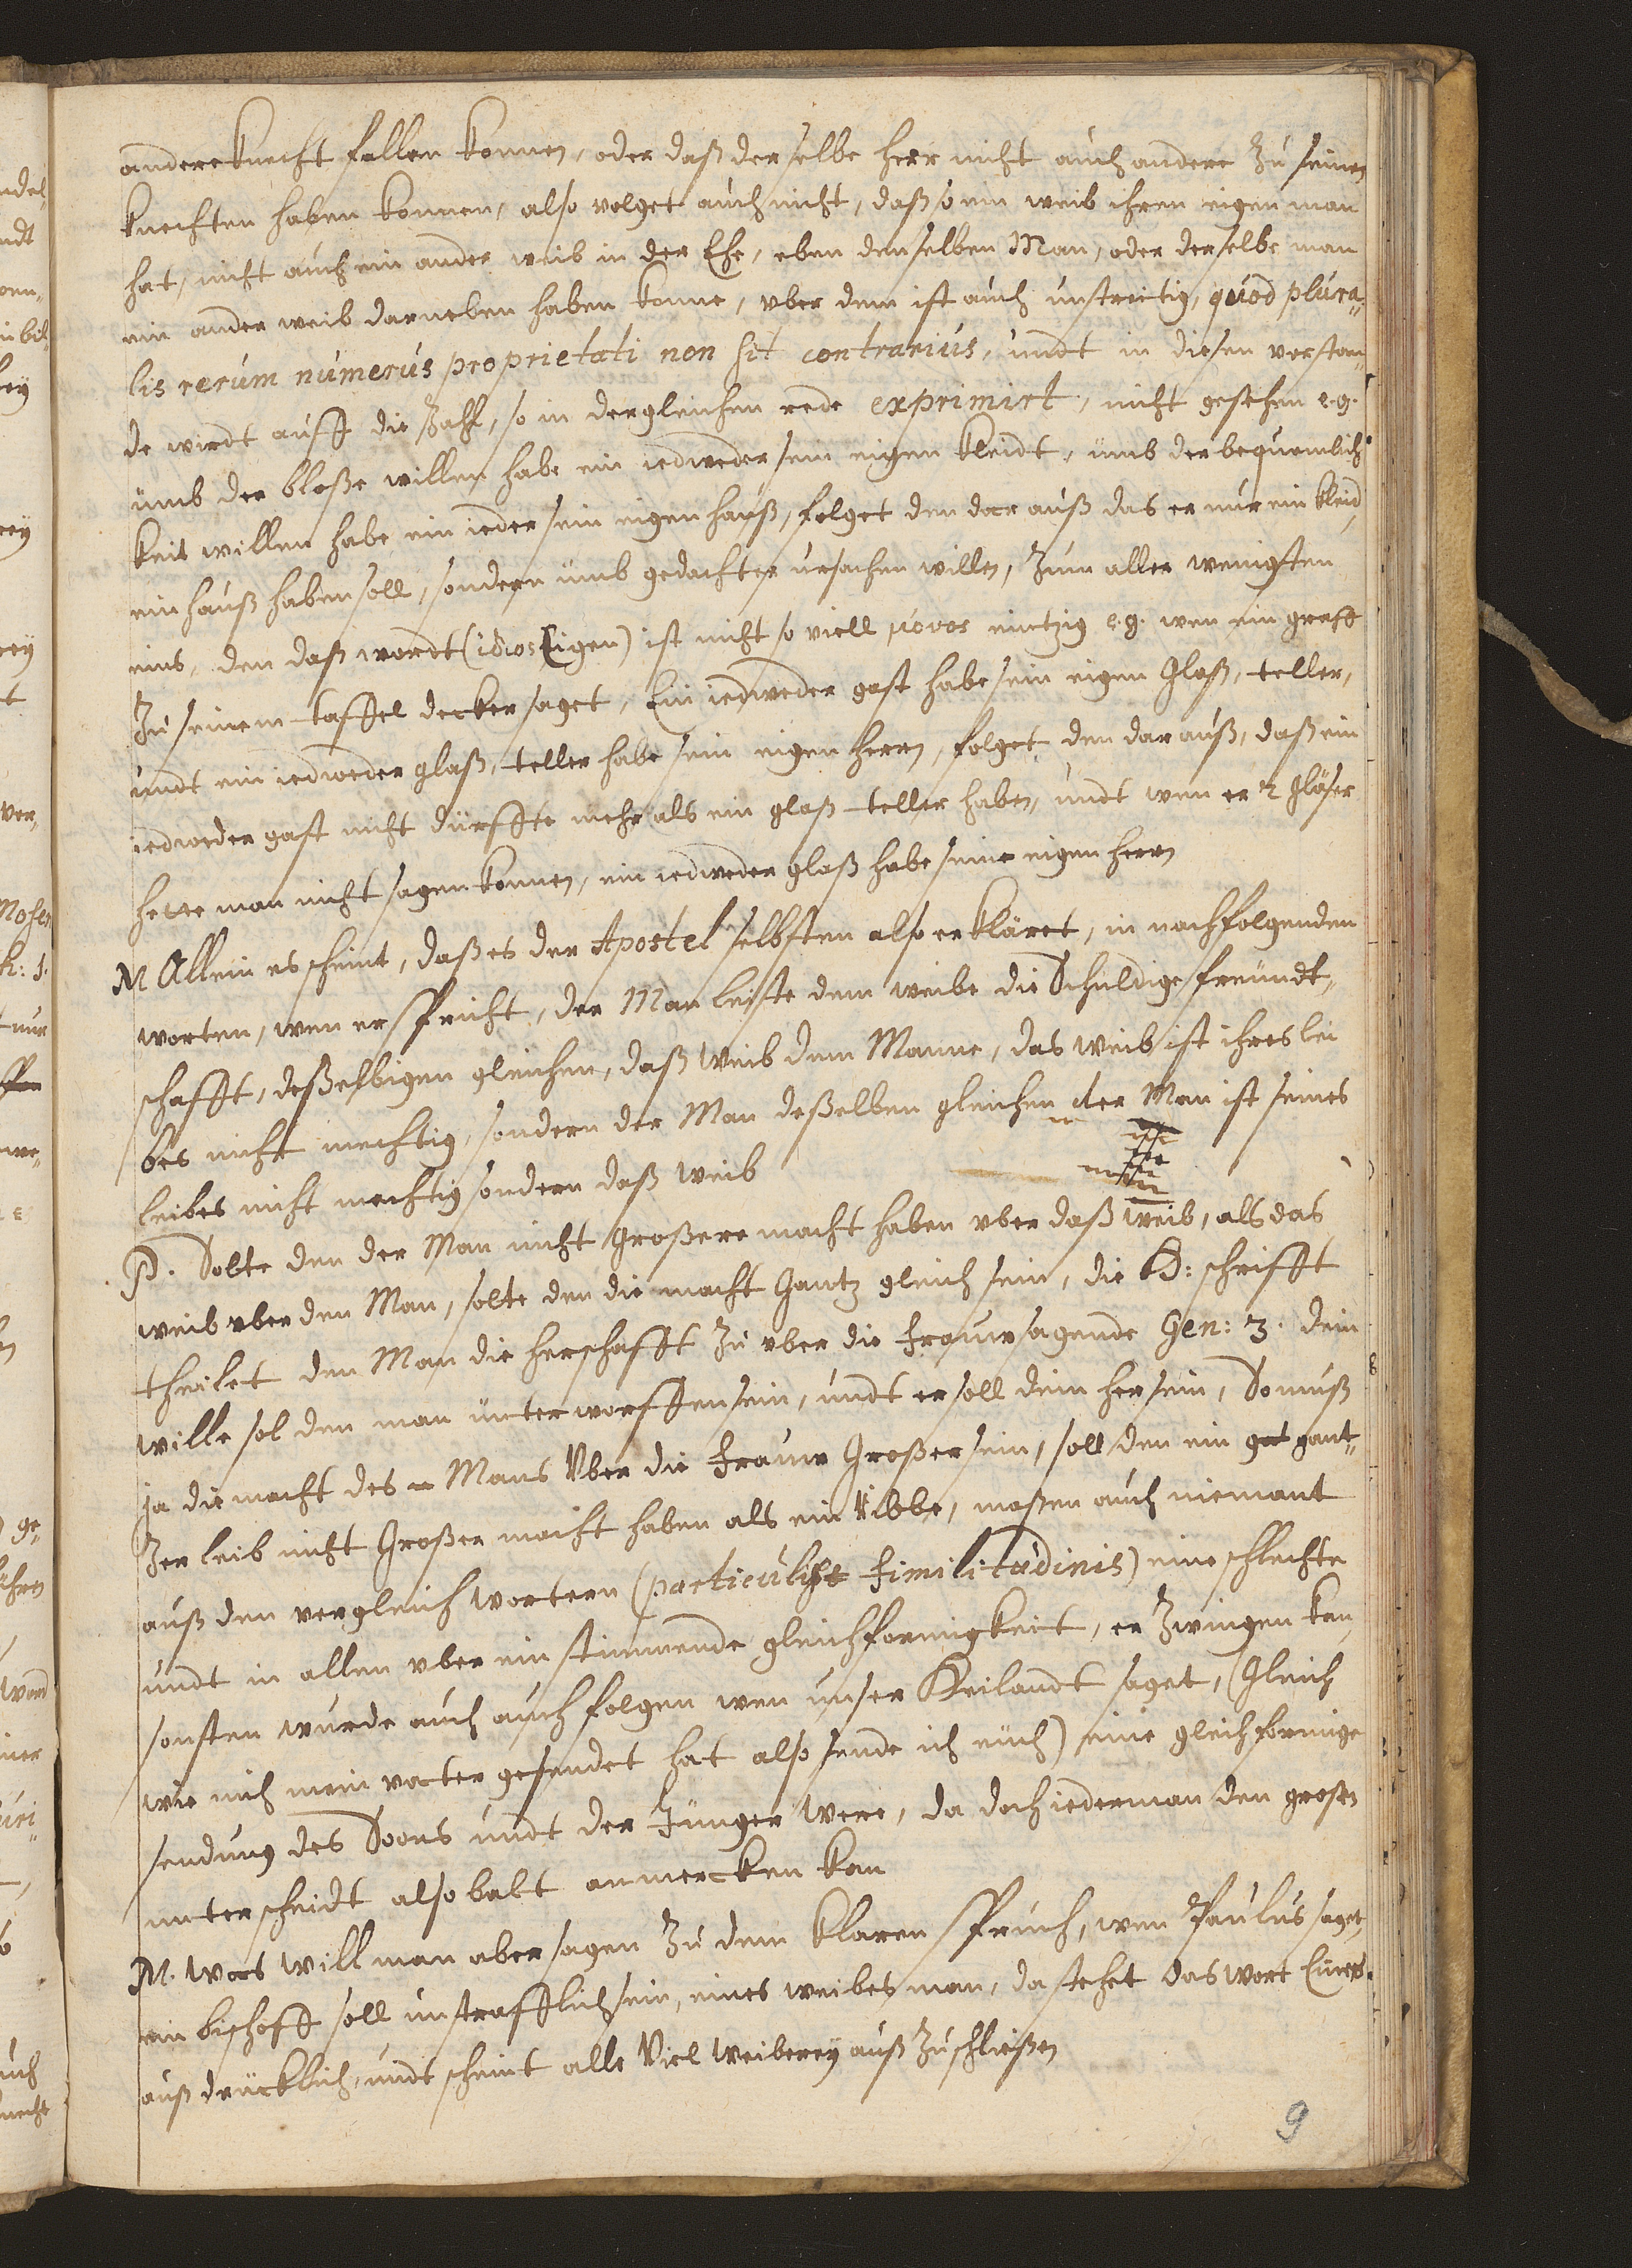 andere knecht fallen konnen, oder daß derselbe herr nicht auch andere zu seinen
knechten haben konnen, also volget auch nicht, daß so ein weib ihren eigen man
hat, nicht auch ein ander weib in der Ehe, eben denselben Man, oder derselbe man
ein ander weib darneben haben konne, vber dem ist auch unstreitig, quod plura„
lis rerum numerus proprietati non sit contrarius, undt in diesen verstan„
de wirdt auff die Zahl, so in dergleichen rede exprimirt, nicht gesehen e.g.
umb der bloße willen habe ein iedweder sein eigen kleidt, umb der bequemlich
keit willen habe ein ieder sein eigen hauß, folget den dar auß das er nur ein kleid
ein hauß haben soll, sondern umb gedachter ursachen willen, zum aller wenigsten
eins, den daß wordt (idios Eigen) ist nicht so viell μονος eintzig e.g. wen ein graff
zu seinem taffel decker saget, Ein iedweder gast habe sein eigen Glaß, teller,
undt ein iedweder glaß, teller habe sein eigen herrn, folget den dar auß, daß ein
iedweder gast nicht dürffte mehr als ein glaß teller haben, undt wen er 2 gläser
hette man nicht sagen konnen, ein iedweder glaß habe seine eigen herrn
M Allein es scheint, daß es der Apostel selbsten also erkläret, in nachfolgenden
worten, wen er spricht, der Man leiste dem weibe die Schuldige freundt„
schafft, deßelbigen gleichen, daß weib dem Manne, das weib ist ihres lei
bes nicht mechtig, sondern der Man deßelben gleichen der Man ist seines
leibes nicht mechtig sondern daß weib
P. Solte den der Man nicht großere macht haben vber daß weib, als das
weib vber den Man, solte den die macht Gantz gleich sein, die H: schrifft
theilet den Man die herschafft zu vber die frauw sagende Gen: 3. dein
wille sol den man unterworffen sein, undt er soll dein her sein, So muß
ja die macht des Mans Vber die frauw Großer sein, soll den ein gat gant„
zer leib nicht Großer macht haben als ein Ribbe, maßen auch niemant
auß den vergleich wortern (particulis similitudinis) eine schlechte
undt in allen vber ein stimmende gleichformigkeit, er zwingen kan
sonsten wurde auch auch folgen wen unser Heilandt saget, (Gleich
wie mich mein vatter gesendet hat also sende ich euch) eine gleichformige
sendung des Soons undt der Junger were, da doch iederman den grosen
unterscheidt also balt anmercken kan
M. Was will man aber sagen zu dem klaren spruch, wen Paulus saget,
ein bischoff soll unstrafflich sein, eines weibes man, da stehet das wort Eines
auß drücklich, undt scheint alle Viel weiberey auß zuschließen
9